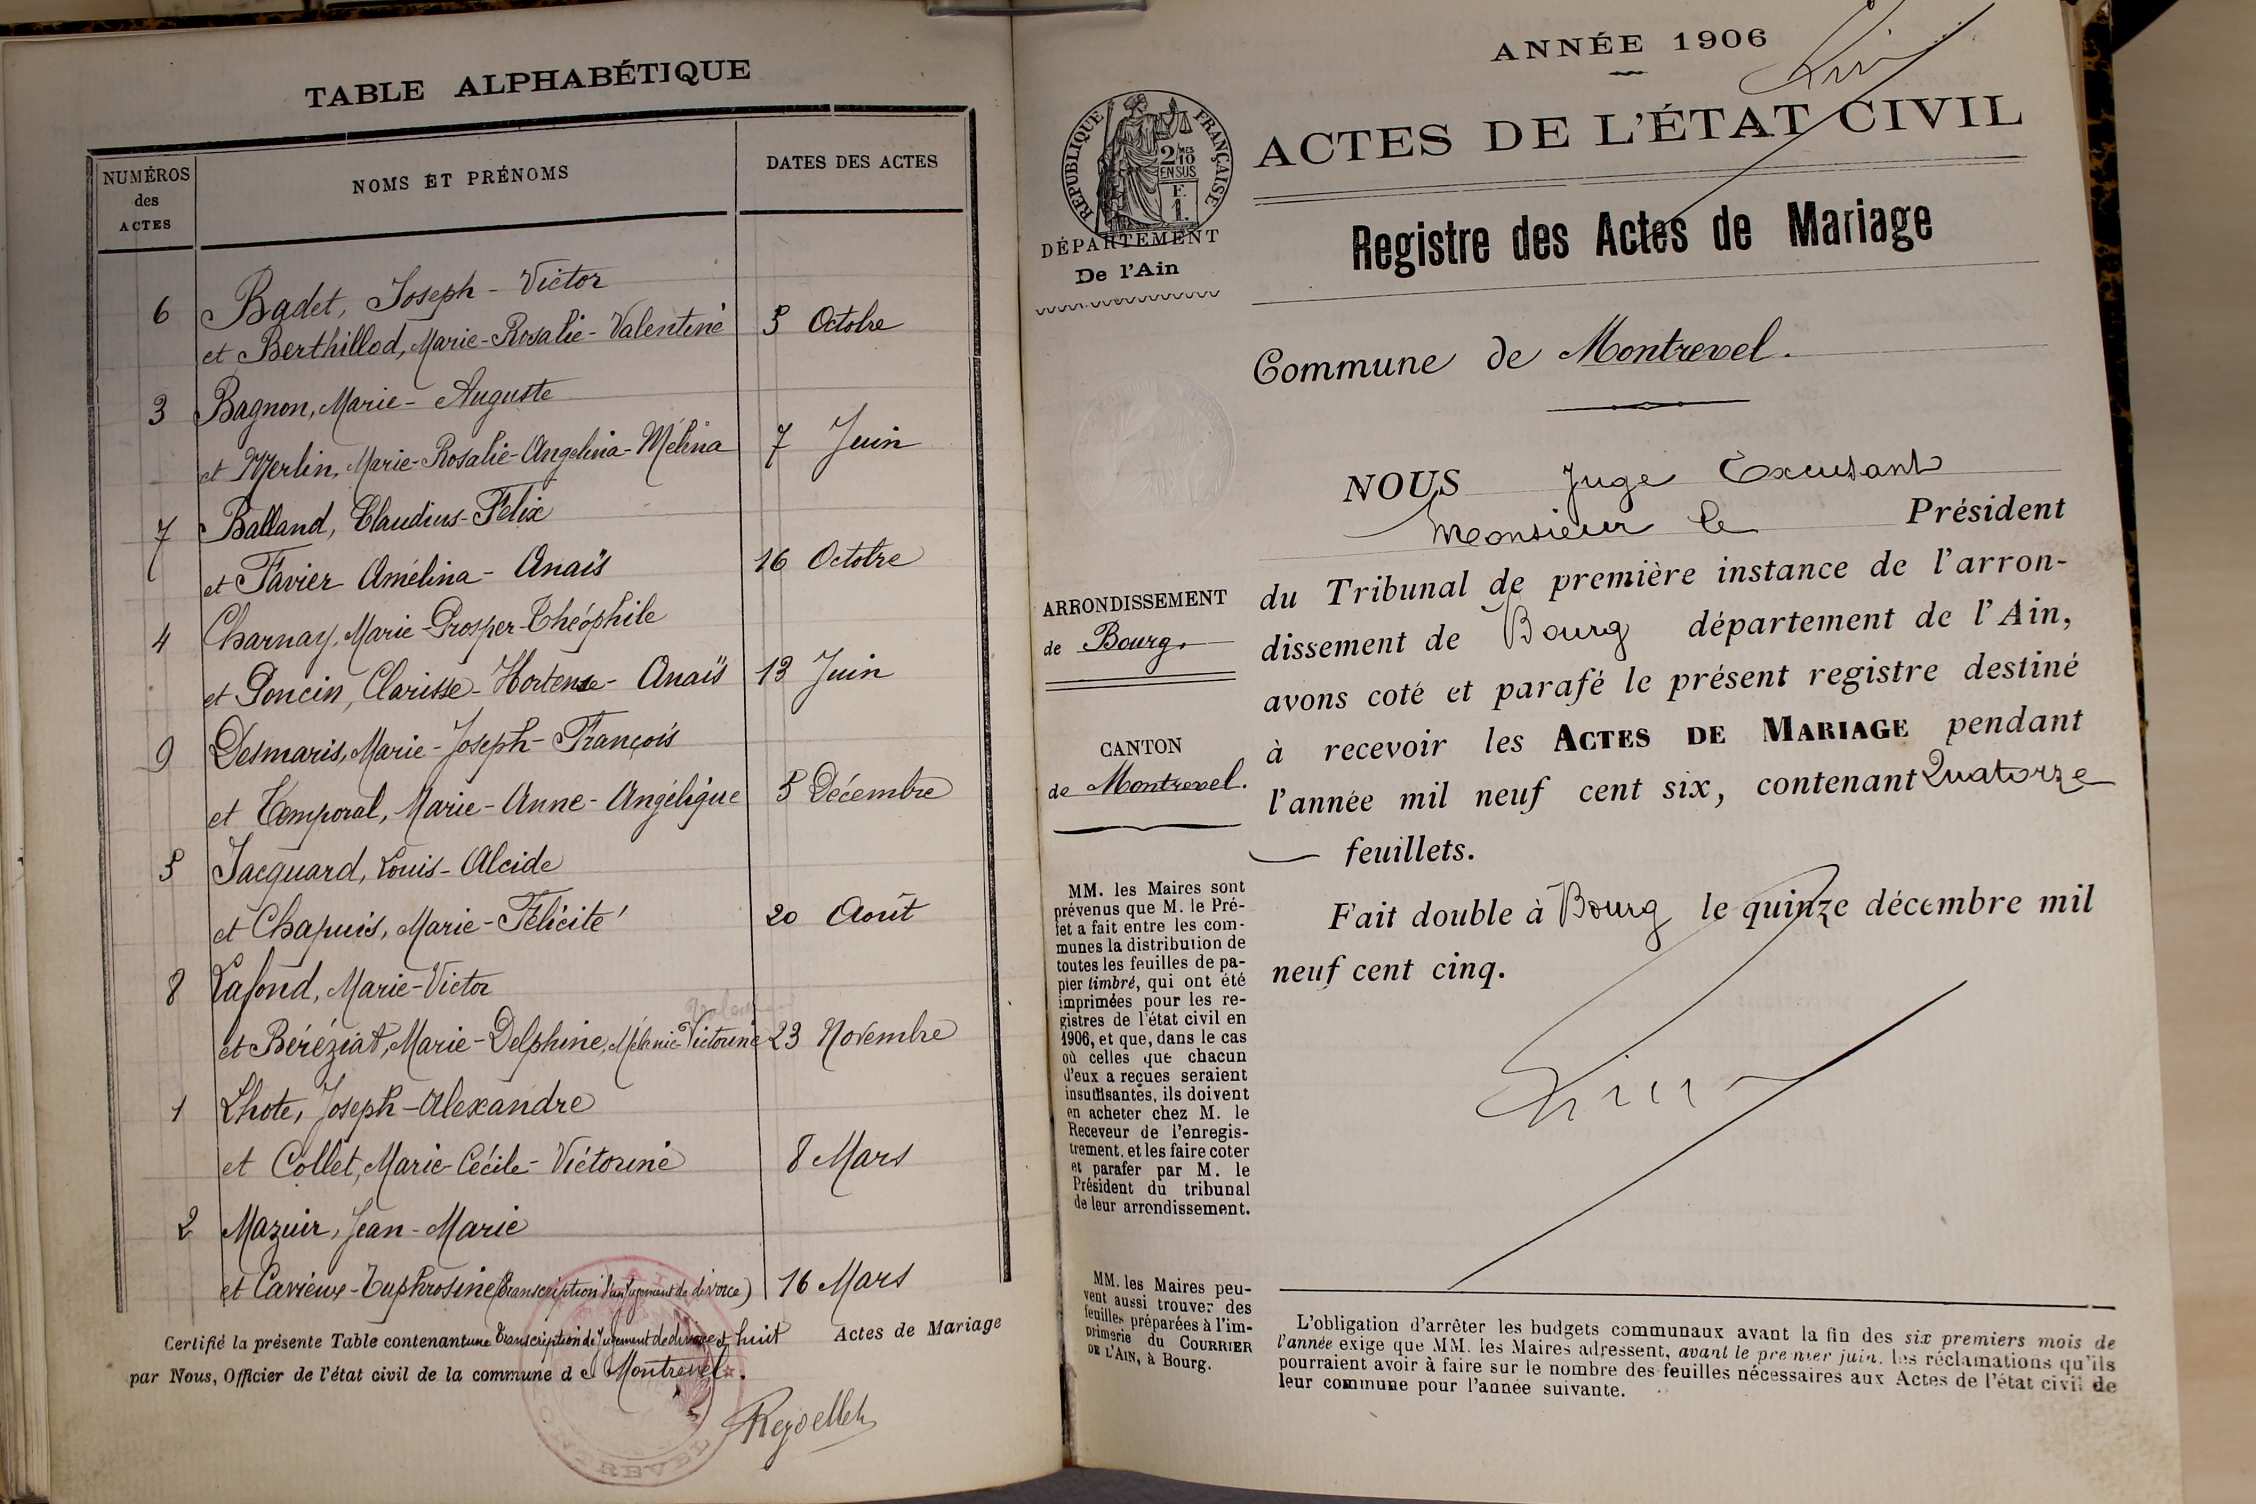 TABLE ALPHABÉTIQUE
NUMÉROS des ACTES
NOMS ET PRÉNOMS
DATES DES ACTES
6 Badet, Joseph-Victor
et Berthillod, Marie-Rosalie-Valentine 5 Octobre
3 Bagnon, Marie-Auguste
et Merlin, Marie-Rosalie-Angelina-Mélina 7 Juin
7 Balland, Claudius-Félix
et Favier Amélina-Anaïs 16 Octobre
4 Charnay, Marie-Prosper-Théophile
et Poncin, Clarisse-Hortense-Anaïs 13 Juin
9 Desmaris, Marie-Joseph-François
et Temporal, Marie-Anne-Angélique 5 Décembre
5 Jacquard, Louis-Alcide
et Chapuis, Marie-Félicité 20 Août
8 Lafond, Marie-Victor
et Béréziat, Marie-Delphine, Mélanie Victorine 23 Novembre
1 Lhote, Joseph-Alexandre
et Collet, Marie-Cécile-Victorine 8 Mars
2 Mazuir, Jean-Marie
et Cavieux-Euphrosine (transcription d'un jugement de divorce) 16 Mars
Certifié la présente Table contenant une transcription de jugement de divorce et huit Actes de Mariage
par Nous, Officier de l'état civil de la commune de Montrevel.
ANNÉE 1906
ACTES DE L'ÉTAT CIVIL
RÉPUBLIQUE FRANÇAISE
2/10 MES
EN SUS
F.
1.
DÉPARTEMENT
De l'Ain
Registre des Actes de Mariage
Commune de Montrevel.
NOUS Juge Excusant
Monsieur le Président
du Tribunal de première instance de l'arron-
dissement de Bourg département de l'Ain,
avons coté et parafé le présent registre destiné
à recevoir les ACTES DE MARIAGE pendant
l'année mil neuf cent six, contenant Quatorze
feuillets.
Fait double à Bourg le quinze décembre mil
neuf cent cinq.
ARRONDISSEMENT
de Bourg.
CANTON
de Montrevel.
MM. les Maires sont
prévenus que M. le Pré-
fet a fait entre les com-
munes la distribution de
toutes les feuilles de pa-
pier timbré, qui ont été
imprimées pour les re-
gistres de l'état civil en
1906, et que, dans le cas
où celles que chacun
d'eux a reçues seraient
insuffisantes, ils doivent
en acheter chez M. le
Receveur de l'enregis-
trement, et les faire coter
et parafer par M. le
Président du tribunal
de leur arrondissement.
MM. les Maires peu-
vent aussi trouver des
feuilles préparées à l'im-
primerie du COURRIER
DE L'AIN, à Bourg.
L'obligation d'arrêter les budgets communaux avant la fin des six premiers mois de
l'année exige que MM. les Maires adressent, avant le premier juin, les réclamations qu'ils
pourraient avoir à faire sur le nombre des feuilles nécessaires aux Actes de l'état civil de
leur commune pour l'année suivante.